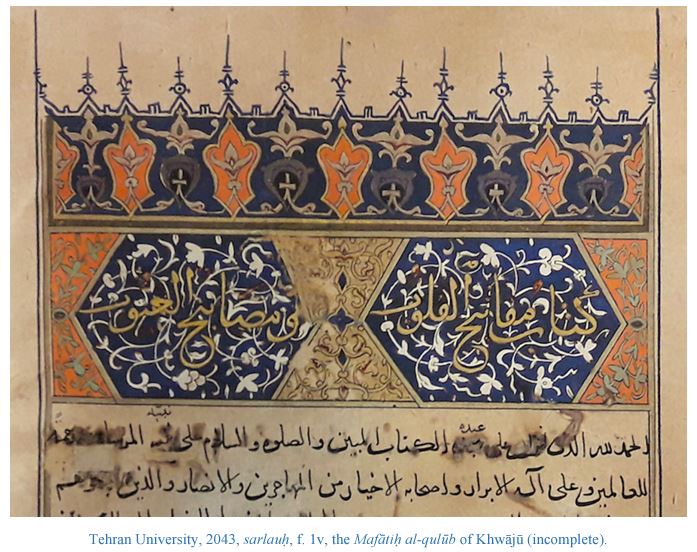 كتاب مفاتيح القلوب
و مصابيح الغيوب
الحمد لله الذى على عبده الكتاب المبين والصلوه والسلام على المرسل رحمة
للعالمين و على آله الابرار و اصحابه الاخيار من المهاجرين والانصار والذين
Tehran University, 2043, sarlauḥ, f. 1v, the Mafātiḥ al-qulūb of Khwājū (incomplete).